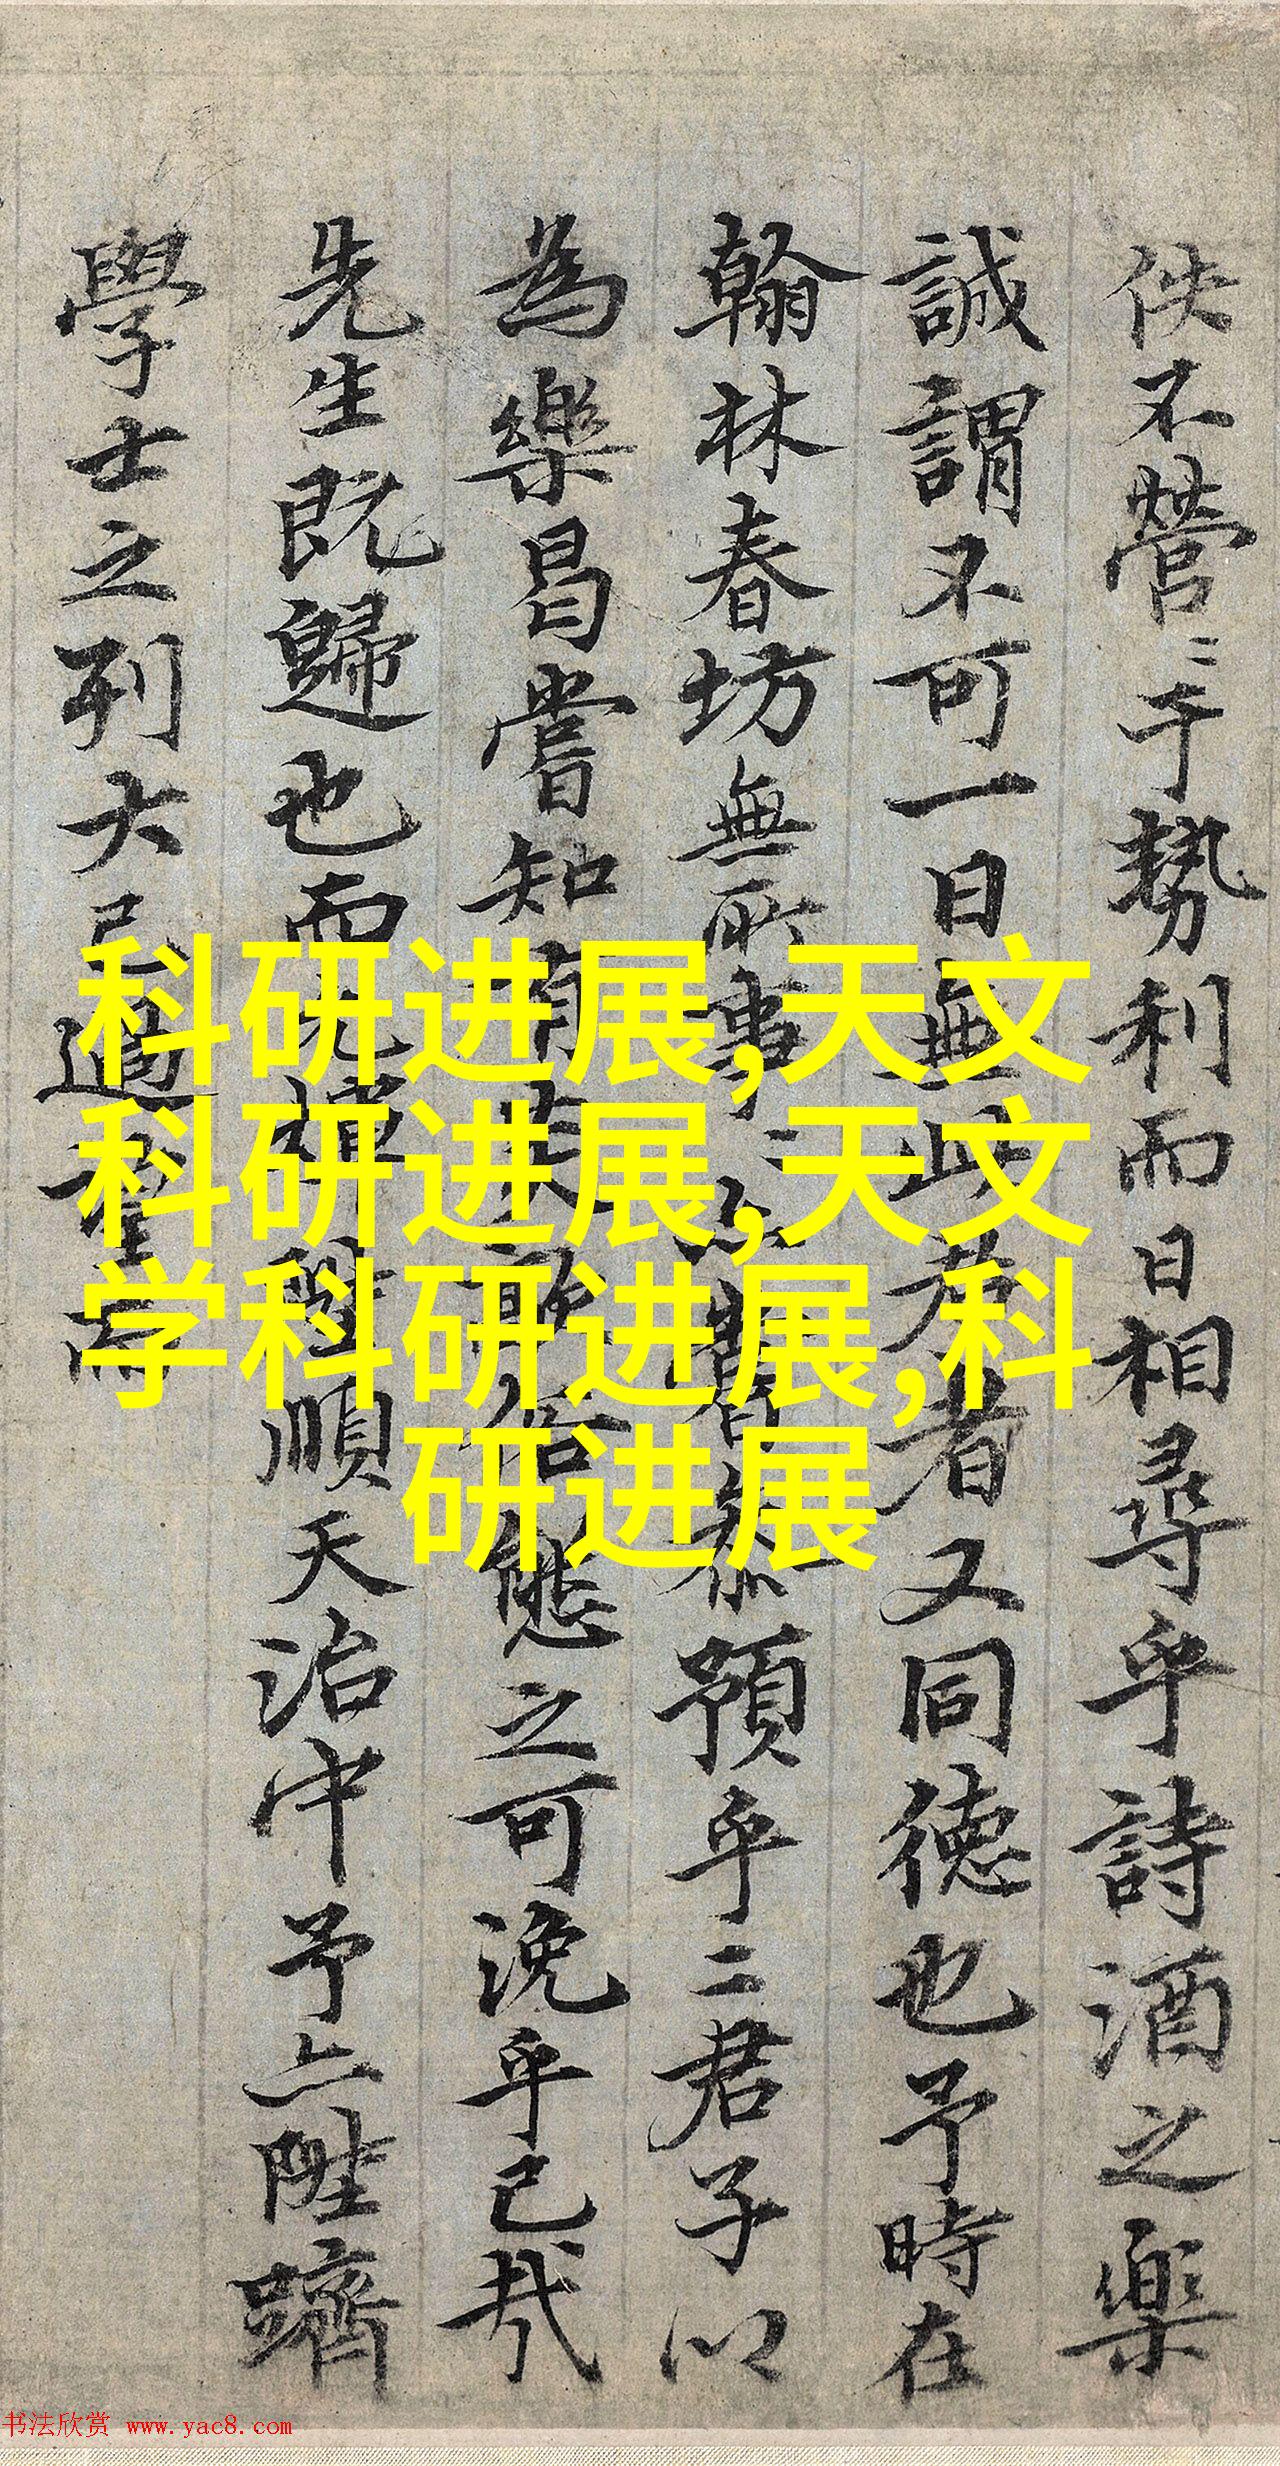 佚不營﹦于勢利而日相尋乎詩酒之樂
誠謂不可一日無此君者又同德也予時在
翰林春坊無所事﹦點替参預乎二君子以
為樂曷嘗知有失歡俗態之可浼乎己哉
先生既歸也而順天治中予亦陞躋
學士之列大已過望而
科研进展,天文
科研进展,天文
学科研进展,科
研进展
书法欣赏 www.yac8.com